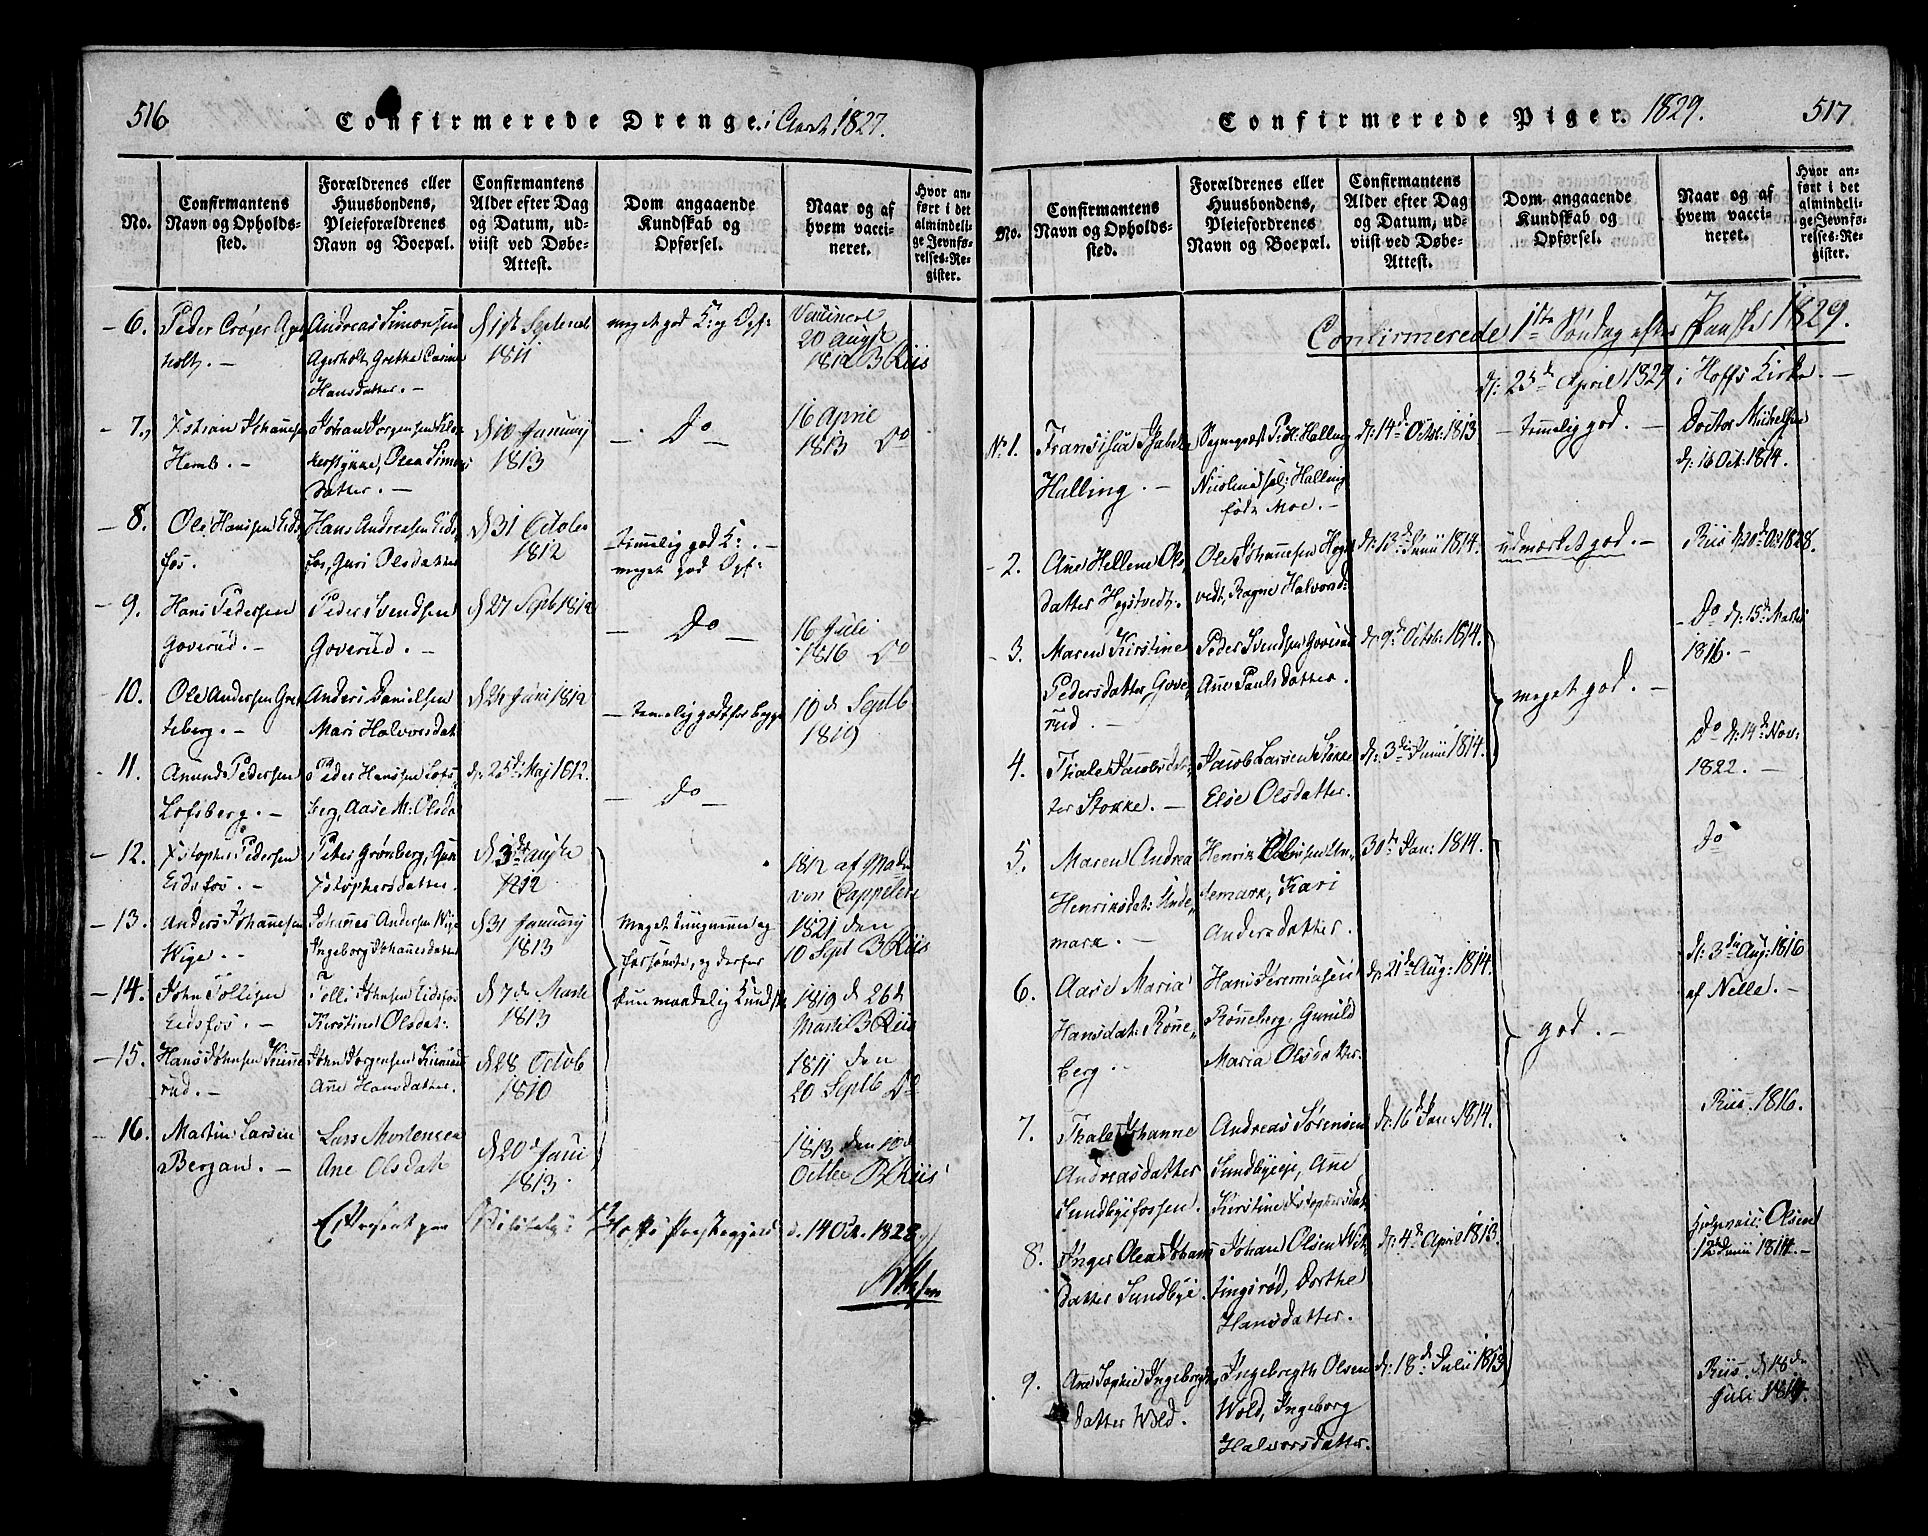 516
Confirmerede Drenge i Aaret 1827.
No.
Confirmantens
Navn og Opholds-
sted.
Forældrenes eller
Huusbondens,
Pleieforældrenes
Navn og Boepæl.
Confirmantens
Alder efter Dag
og Datum, ud-
viist ved Døbe-
Attest.
Dom angaaende
Kundskab og
Opførsel.
Naar og af
hvem vacci-
neret.
Hvor an-
ført i det
almindeli-
ge Jevnfø-
relses-Re-
gister.
6.
Peder Crøger Ager
holt. –
Andreas Simonsen
Agerholt, Grethe
Hansdatter. –
d 1st September
1811
meget god K: og Opf:
Vaccineret
20 Augst
1812 B Riis
7.
Xstian Johannesen
Hemb. –
Johan Jørgensen
Olea Simens
datter. –
d 10 Januarij
1813
– Do –
16 April
1813 Do
8.
Ole Hansen Eids
fos.
Hans Andreasen Eids
fos, Guri Olsdatter
d 31 October
1812
temmelig god K: –
meget god Opf:
9.
Hans Pedersen
Goverud. –
Peder Svendsen
Goverud. –
d 27 Septb 1812
– Do –
16 Juli
1816 Do
10.
Ole Andersen Gret
teberg. –
Anders Danielsen
Mari Halvorsdat
d 24 Juni 1812
– temmelig godt for begge
10 d Septb
1819
11.
Amund Pedersen
Lofsberg. –
Peder Hansen Lofs
berg, Aase M: Olsdat
d: 25d Maj 1812.
– Do –
12.
Xstopher Pedersen
Eidsfos. –
Peter Grønberg, Gun
Xstophersdatter.
d 3de Augta
1812
1812 af Mad:
von Cappelen
13.
Anders Johannesen
Wige. –
Johannes Andersen Wige
Ingeborg Johannesdatter
d 31 Januarij
1813
Meget tungnemme og
forsømte, og derfor
kun maadelig Kundsk
1821 den
10 Sept B Riis
14.
John Tollefsen
Eidsfos. –
Tolli Johnsen Eidsfos
Kirstine Olsdat:
d 7de Marti
1813
1819 d 26d
Marti B Riis
15.
Hans Johnsen
rud. –
John Jorgensen
Ane Hansdatter.
d 28 Octob
1810
1811 den
20 Septb Do
16.
Martin Larsen
Bergan. –
Lars Mortensen
Ane Olsdatr
d 20 d Juni
1813.
1813 den 10d
Octbr B Riis
Præsent paa Visitats i Hoffs Præstegjeld d. 14 Oct. 1828.
517
Confirmerede Piger. 1829.
No.
Confirmantens
Navn og Opholds-
sted.
Forældrenes eller
Huusbondens,
Pleiefordrenes
Navn og Boepæl.
Confirmantens
Alder efter Dag
og Datum, ud-
viist ved Døbe-
Attest.
Dom angaaende
Kundskab og
Opførsel.
Naar og af
hvem vacci-
neret.
Hvor an-
ført i det
almindeli-
ge Jevnfø-
relses-Re-
gister.
Confirmerede 1ste Søndag efter Paaske 1829.
d: 25d April 1829 i Hoffs Kirke. –
No 1.
Fransisca Isabella
Halling. –
Sognepræst P: H: Halling
Nicoline sal: Halling
født Moe. –
d: 14d Octbr: 1813
– temmelig god. –
Doctor Michelsen
d: 16 Oct: 1814.
2.
Ane Hellene Ols
datter Hegstvedt.
Ole Johannesen Hegst
vedt, Ragne Halvorsd:
d: 13d Junii 1814.
udmærket god. –
Riis d: 20d Oct 1828.
3.
Maren Kirstine
Pedersdatter Gove
rud –
Peder Svendsen Goverud
Ane Paulsdatter.
d: 9d Octbr: 1814.
meget god. –
– Do d: 15d Martii
1816. –
4.
Thale Jacobsdat
ter Stokke. –
Jacob Larsen Stokke
Else Olsdatter.
d: 3die Junii 1814.
Do d: 14d Nov:
1822. –
5.
Maren Andrea
Henriksdat: Unde
mark. –
Henrik Olsen Un
demark, Kari
Andersdatter.
30te Jan: 1814.
Do
6.
Aase Maria
Hansdat: Røne
berg. –
Hans Jeremiasen
Røneberg, Gunild
Maria Olsdatter.
d: 21de Aug: 1814.
god. –
d: 3die Aug: 1816
af Nelle. –
7.
Thale Johanne
Andreasdatter
Sundbyefossen.
Andreas Sørensen
Sundbyeeje, Ane
Kirstine Xstophersdat
d: 16d Jan: 1814.
Riis. 1816.
8.
Inger Olea Johans
datter Sundbye.
Johan Olsen Wit
tingsrød, Dorthe
Hansdatter.
d: 4de April 1813.
Olsen
12d Junii 1814. –
9.
Ane Sophie Ingebregts
datter Wold.
Ingebregth Olsen
Wold, Ingeborg
Halvorsdatter.
d: 18d Julii 1813
Riis. d 18de
Juli 1814.